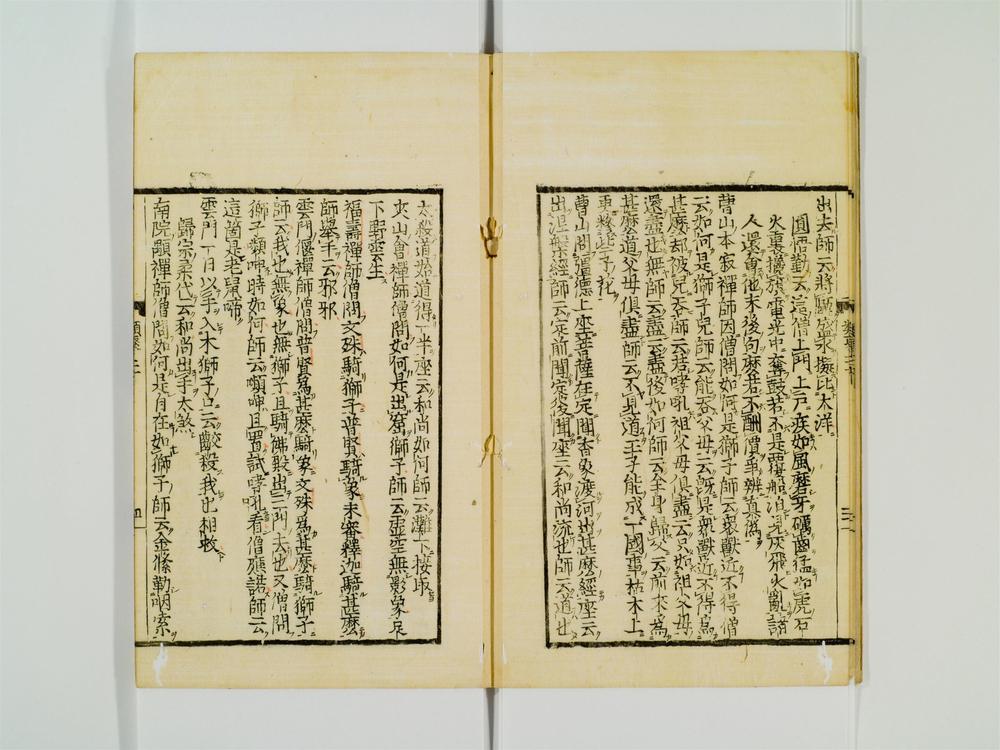 出去師云將驢盛水擬比大洋
圓悟勤云這僧上門上戶疾如風磨牙礪齒猛如虎石
火裏攙旗電光中奪鼓若不是覆船洎見灰飛火亂諸
人還會他末後句麼若不酬價爭辨真偽
曹山本寂禪師因僧問如何是獅子師云衆獸近不得僧
云如何是獅子兒師云能吞父母云既是衆獸近不得爲
甚麼却被兒吞師云若哮吼祖父母俱盡云只如祖父母
還盡也無師云盡云盡後如何師云全身歸父云前來爲
甚麼道父母俱盡師云不見道王子能成一國事枯木上
更糝些子花
曹山問彊德上座菩薩在定聞香象渡河出甚麼經座云
出涅槃經師云定前聞定後聞座云和尚流也師云道也
太殺道始道得一半座云和尚如何師云灘下接取
夾山會禪師僧問如何是出窟獅子師云虛空無影象足
下野雲生
福壽禪師僧問文殊騎獅子普賢騎象未審釋迦騎甚麼
師擧手云邪邪
雲門偃禪師僧問普賢爲甚麼騎象文殊爲甚麼騎獅子
師云我也無象也無獅子且騎佛殿出三門去也又僧問
獅子嚬呻時如何師云嚬呻且置試哮吼看僧應諾師云
這箇是老鼠啼
雲門一日以手入木獅子口云齩殺我也相救
歸宗柔代云和尚出手太煞
南院顒禪師僧問如何是自在如獅子師云金絛勒咽索